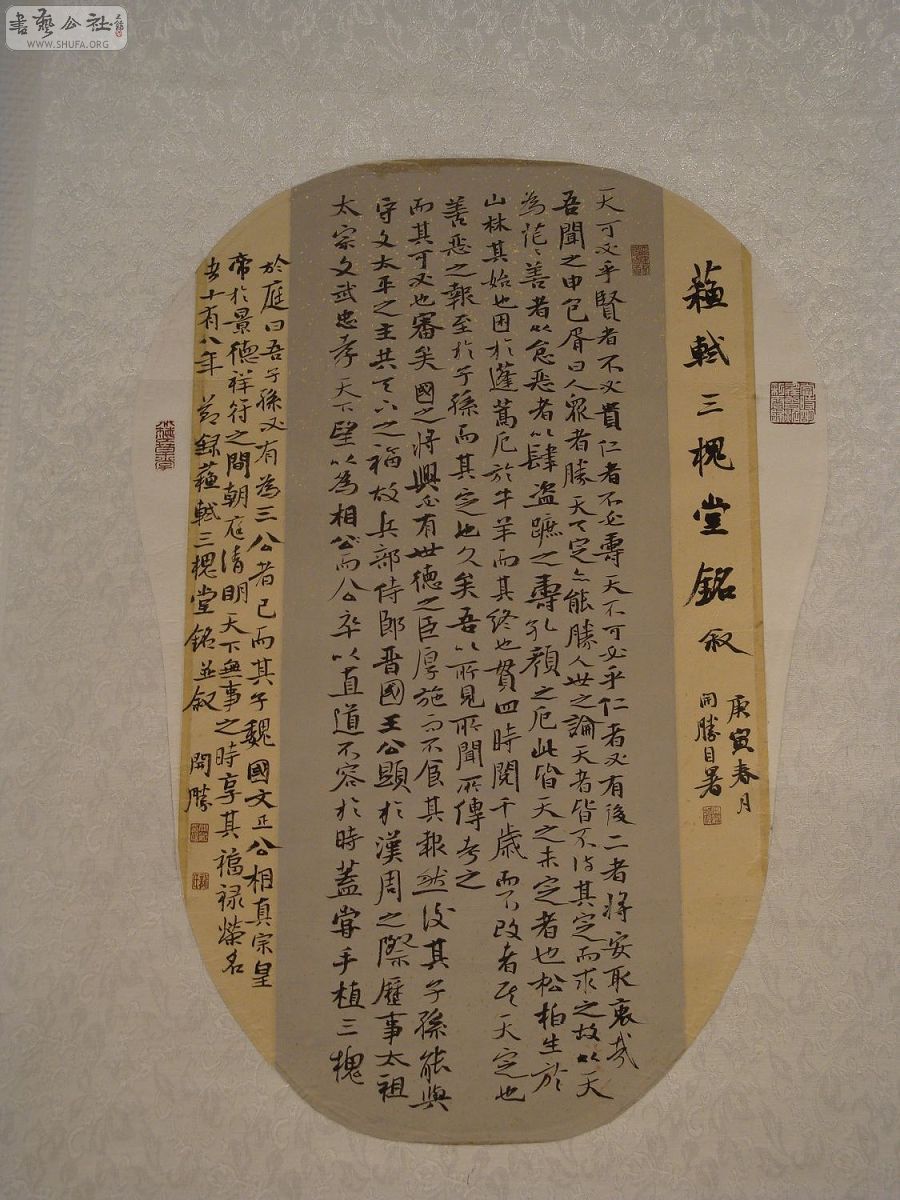 書藝公社
WWW.SHUFA.ORG
蘓軾三槐堂銘叙
庚寅春月
開勝自署
天可必乎賢者不必貴仁者不必壽天不可必乎仁者必有後二者將安取衷哉
吾聞之申包胥曰人眾者勝天天定亦能勝人世之論天者皆不待其定而求之故以天
為茫茫善者以怠惡者以肆盜蹠之壽孔顏之厄此皆天之未定者也松柏生於
山林其始也困於蓬蒿厄於牛羊而其終也貫四時閱千歲而不改者其天定也
善惡之報至於子孫而其定也久矣吾以所見所聞所傳考之
而其可必也審矣國之將興必有世德之臣厚施而不食其報然後其子孫能與
守文太平之主共天下之福故兵部侍郎晉國王公顯於漢周之際歷事太祖
太宗文武忠孝天下望以為相公而公卒以直道不容於時蓋嘗手植三槐
於庭曰吾子孫必有為三公者已而其子魏國文正公相真宗皇
帝於景德祥符之間朝庭清明天下無事之時享其福祿榮名
者十有八年 節録蘓軾三槐堂銘並叙 開勝